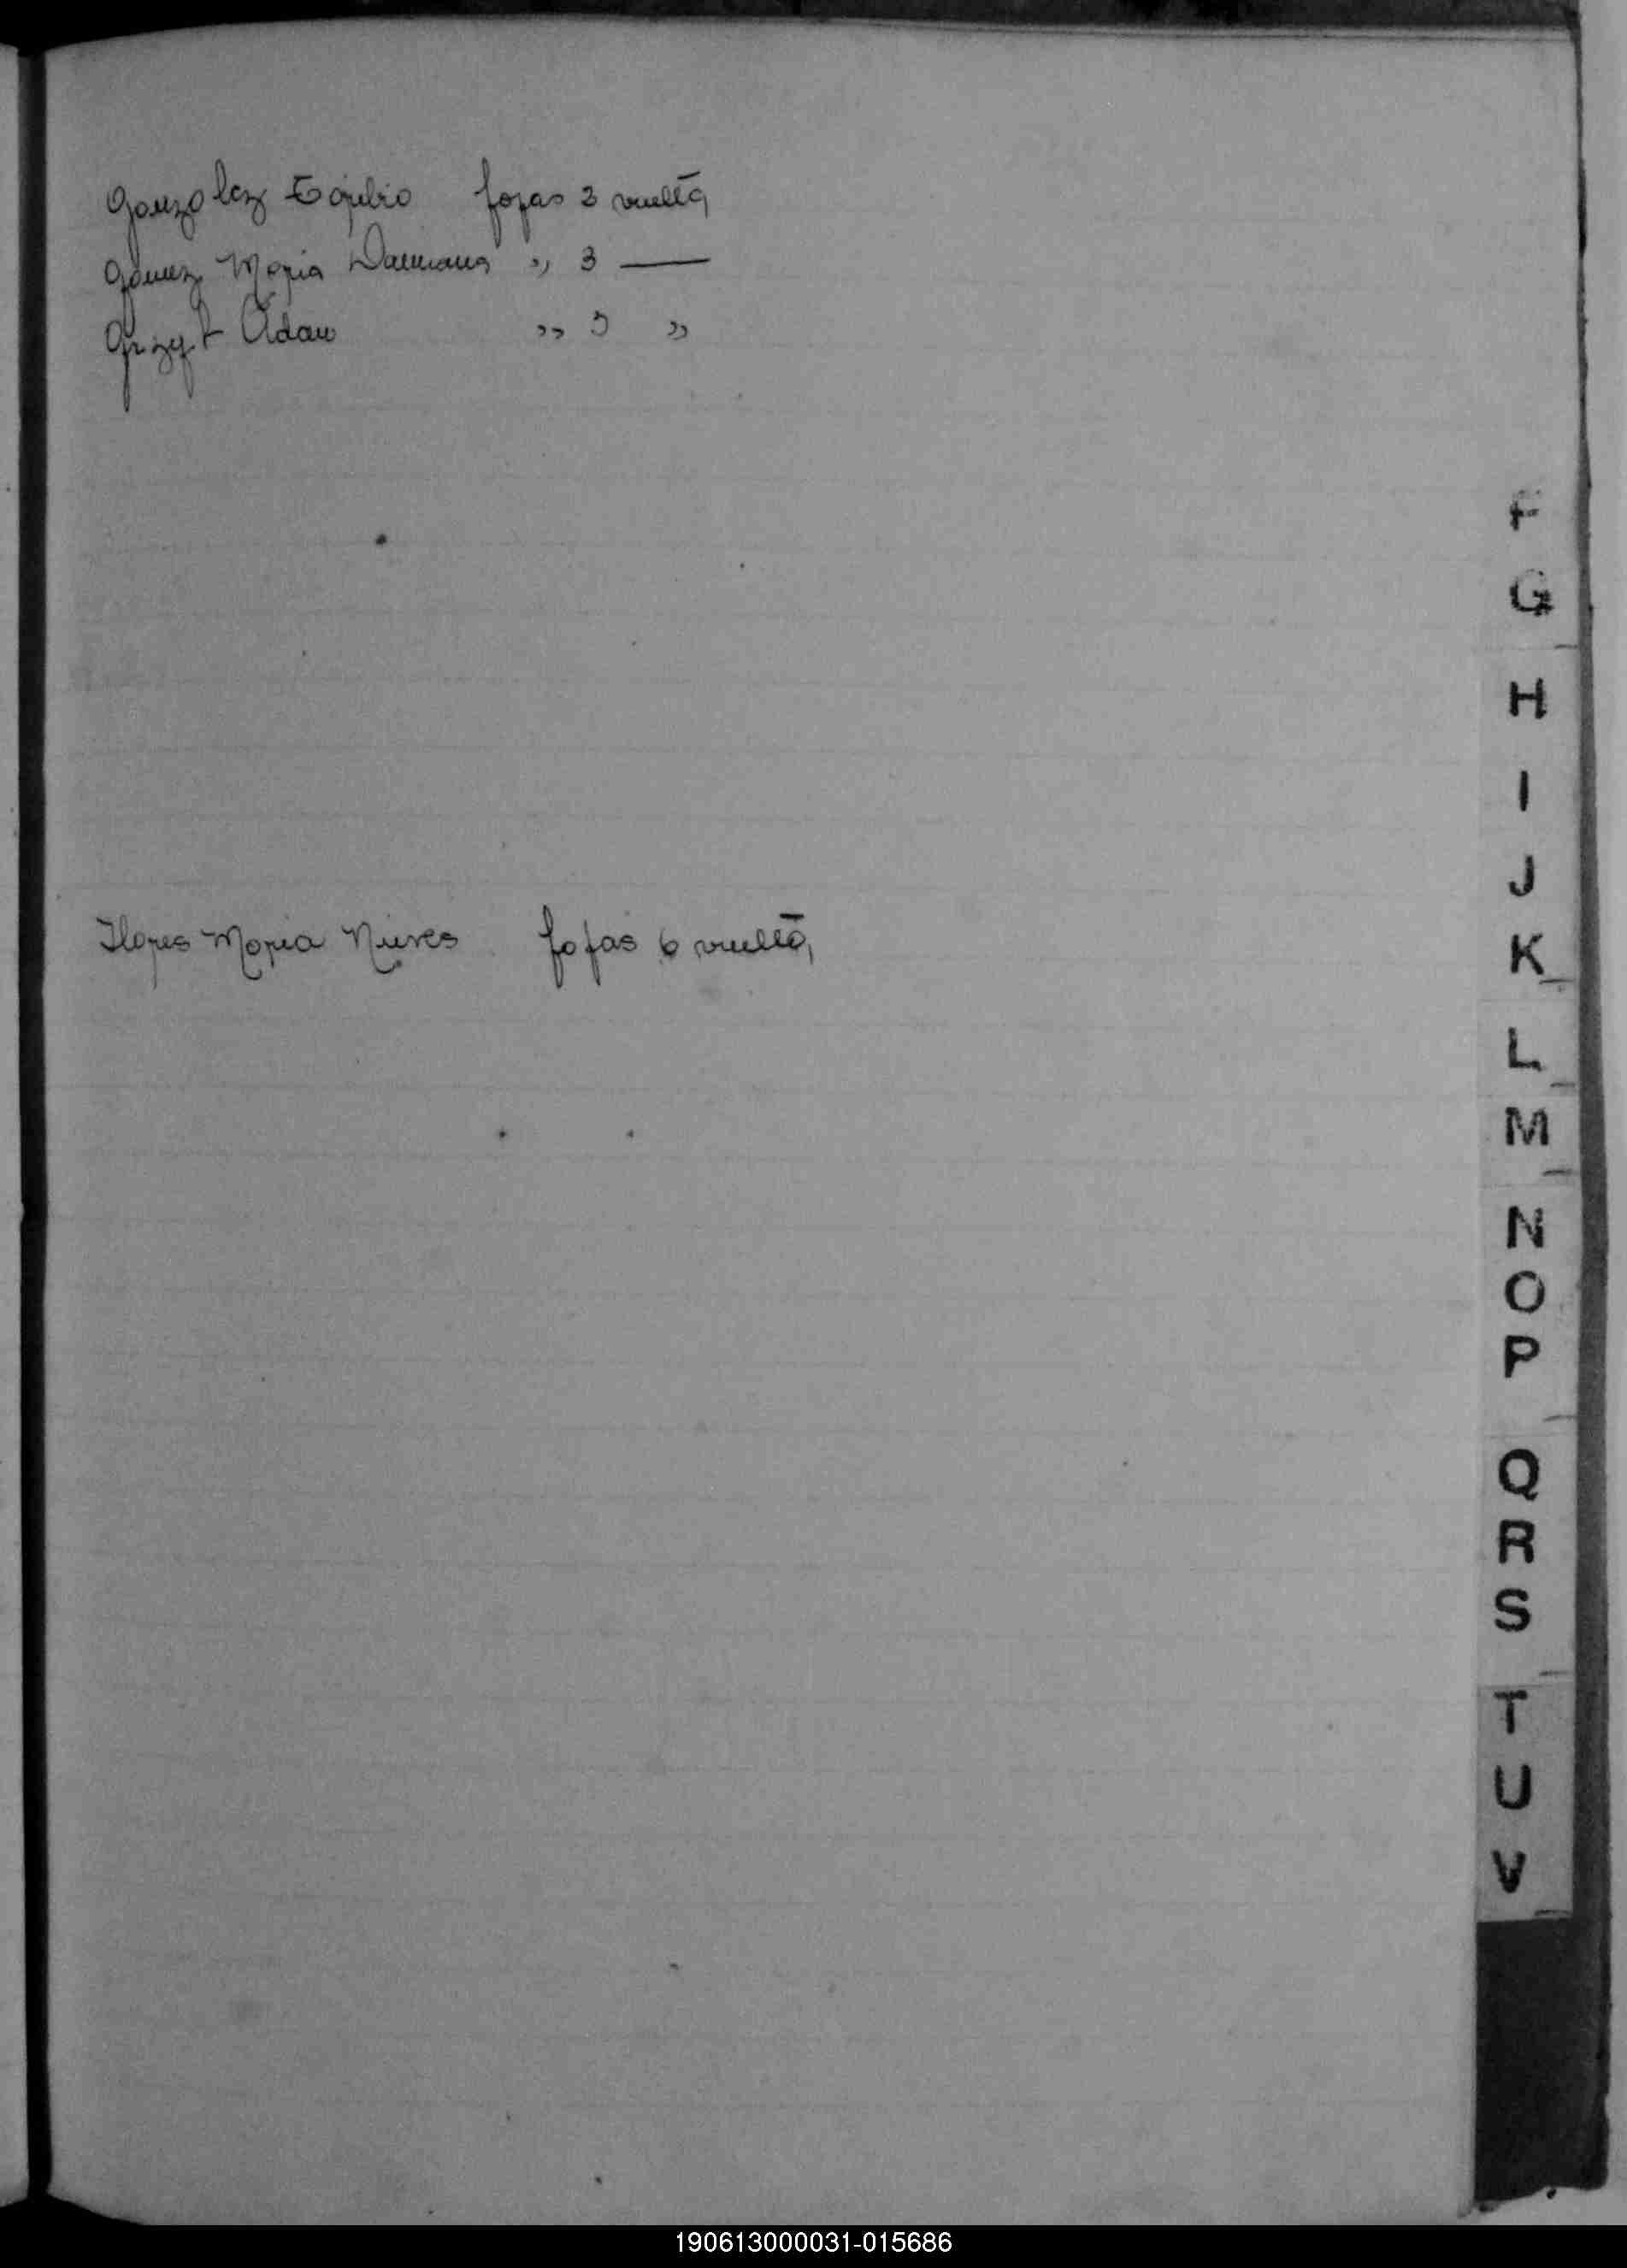 Gonzalez fojas 2 vuelta
Gomez Maria Damiana " 3 —
Grzyb Adam " 5 "
F
G
H
I
J
Flores Maria Nieves fojas 6 vuelta
K
L
M
N
O
P
Q
R
S
T
U
V
190613000031-015686